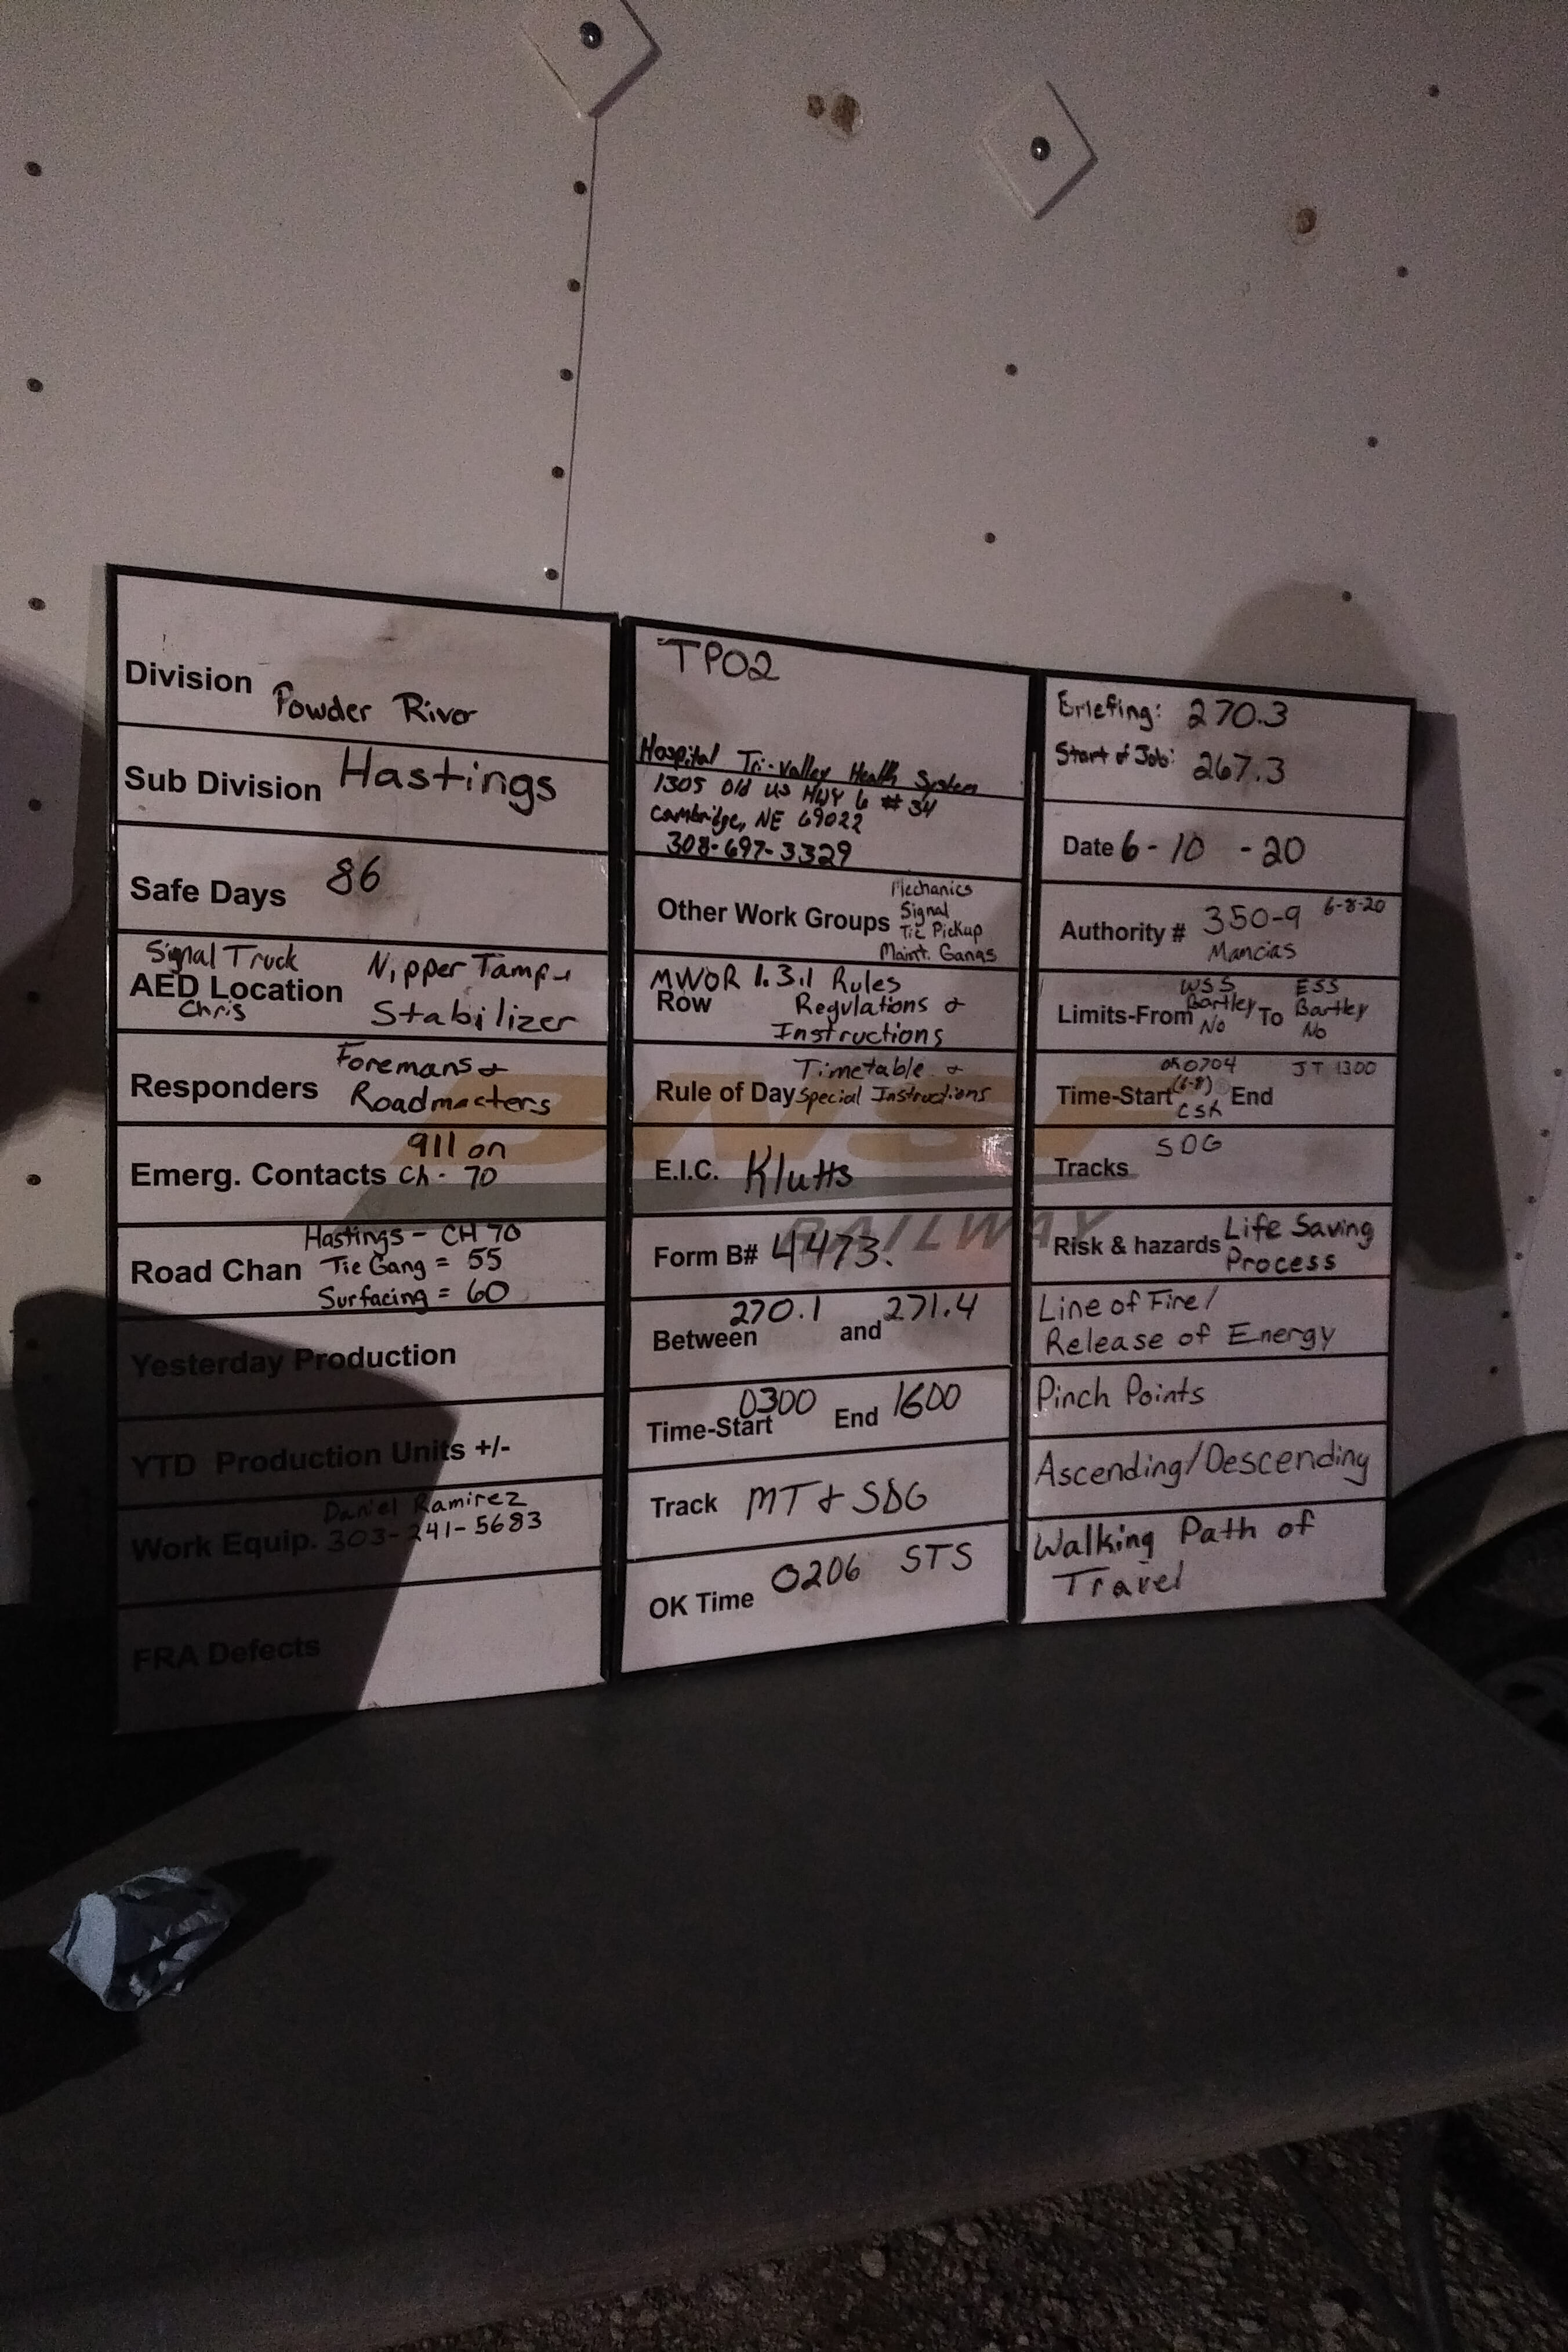 Division Powder River
Sub Division Hastings
Safe Days 86
Signal Truck
AED Location
Chris
Nipper Tamp +
Stabilizer
Responders
Foremans +
Roadmasters
Emerg. Contacts
911 on
Ch - 70
Road Chan
Hastings - CH 70
Tie Gang = 55
Surfacing = 60
Yesterday Production
YTD Production Units +/-
Work Equip.
Daniel Ramirez
303-241-5683
FRA Defects
TP02
Hospital Tri-Valley Health System
1305 Old US HWY 6 # 34
Cambridge, NE 69022
308-697-3329
Other Work Groups
Mechanics
Signal
Tie Pickup
Maint. Gangs
MWOR 1.3.1 Rules
Row
Regulations +
Instructions
Rule of Day
Timetable +
Special Instructions
E.I.C. Klutts
Form B# 4473.
Between 270.1 and 271.4
Time-Start 0300 End 1600
Track MT + SDG
OK Time 0206 STS
BNSF
RAILWAY
Briefing: 270.3
Start of Job: 267.3
Date 6-10-20
Authority # 350-9 6-8-20
Mancias
Limits-From
WSS
Bartley
No
To
ESS
Bartley
No
Time-Start
OK 0704
(6-8)
CSK
End
JT 1300
Tracks SDG
Risk & hazards
Life Saving
Process
Line of Fire/
Release of Energy
Pinch Points
Ascending/Descending
Walking Path of
Travel